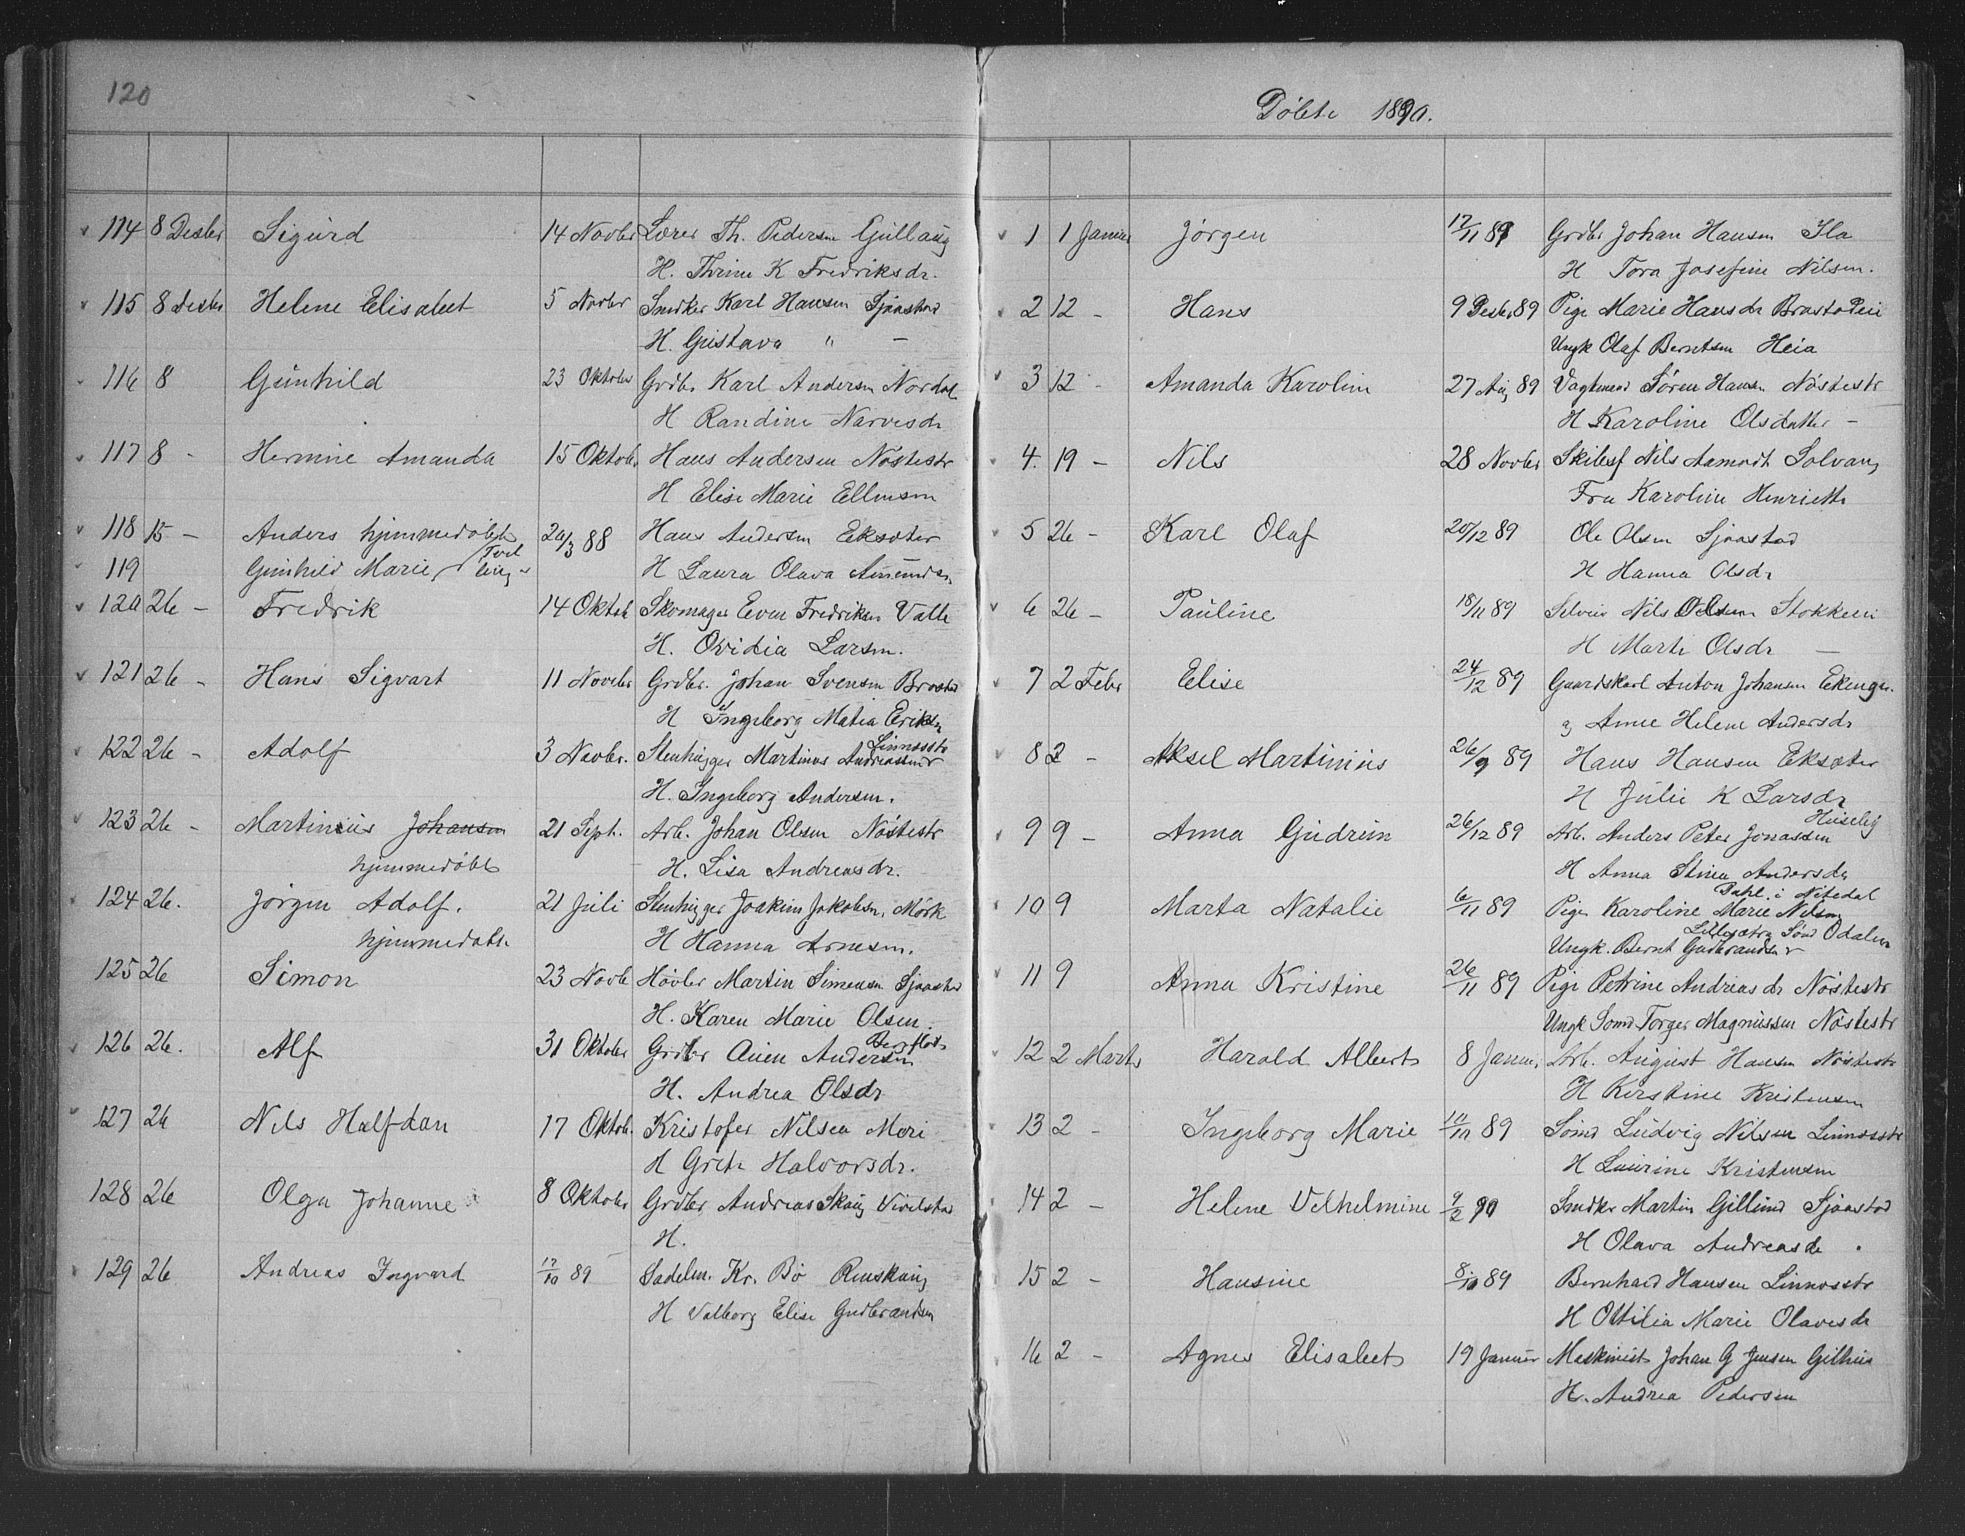 120
114 8 Desbr Sigurd 14 Novbr Lærer Th. Pedersen Gullaug
H. Thrine K Fredriksdr.
115 8 Desbr Helene Elisabet 5 Novbr Smdker Karl Hansen Sjaastad
H. Gustava " —
116 8 Gunhild 23 Oktober Grdbr Karl Andersen Nordal
H Randine Narvesdr
117 8 - Hermine Amanda 15 Oktobr Hans Andersen Nøstestr
H Elise Marie Ellensen
118 15 — Anders hjemmedøbt 20/3 88 Hans Andersen Eksæter
119 Gunhild Marie, Tvillinger H Laura Olava
120 26 — Fredrik 14 Oktob Skomager Even Fredriksen Valle
H. Ovidia Larsen.
121 26 - Hans Sigvart 11 Novebr Grdbr. Johan Svensen Brastad
H Ingeborg Matea Eriksen
122 26 — Adolf 3 Novbr. Stenhugger Martinus Andreassen Linnesstr
H. Ingeborg Andersen.
123 26 - Martinius Johansen 21 Sept. Arb. Johan Olsen Nøstestr
hjemmedøbt H. Lisa Andreasdr.
124 26. Jørgen Adolf. 21 Juli Stenhugger Joakim Jakobsen, Mørk
hjemmedøbt H Hanna Arnesen.
125 26 Simon 23 Novb Høvler Martin Simensen Sjaastad
H. Karen Marie Olsen.
126 26. Alf 31 Oktober Grdbr Auen Andersen
H. Andrea Olsdr
127 26 Nils Halfdan 17 Oktob. Kristofer Nilsen Meri
H Grete Halvorsdr.
128 26 Olga Johanne 8 Oktober Grdbr Andreas Skaug Vivelstad
H.
129 26 Andreas Ingvard 17/10 89 Sadelm. Kr. Bø Renskaug
H Valborg Elise Gudbrandsen
Døbte 1890.
1 1 Januar Jørgen 17/11 89 Grdbr Johan Hansen Ila
H Tora Josefine Nilsen.
2 12 - Hans 9 Desbr 89 Pige Marie Hansdr Brastadeie
Ungk Olaf Berntsen Heia
3 12 - Amanda Karoline 27 Aug 89 Vagtmand Søren Hansen Nøstestr
H Karoline Olsdatter —
4. 19 — Nils 28 Novbr Skibsf Nils Aamodt Solvang
Fru Karoline Henriette
5 26 - Karl Olaf 20/12 89 Ole Olsen Sjaastad
H Hanna Olsdr
6 26 — Pauline 18/11 89 Selveier Nils Olsen Stokkeri
H Marte Olsdr —
7 2 Febr Elise 24/12 89 Gaardskarl Anton Johansen Ekenger.
og Anne Helene Andersdr
8 2 - Aksel Martinius 26/9 89 Hans Hansen Eksæter
H Julie K Larsdr
9 9 — Anna Gudrun 26/12 89 Arb. Anders Peter Jonassen Huseby
H Anna Stina Andersdr
10 9 Marta Natalie 6/11 89 Pige Karoline Marie Nilsen Dahl i Nitedal
Ungk. Bernt Gudbrandsen Lillesætra Sønd Odalen
11 9 Anna Kristine 26/11 89 Pige Petrine Andreasdr Nøstestr
Ungk Sømd Torger Magnussen Nøstestr
12 2 Marts Harald Albert 8 Januar Arb. August Hansen Nøstestr
H Kirstine Kristensen
13 2 - Ingeborg Marie 10/10 89 Sømd Ludvig Nilsen Linnesstr
H Laurine Kristensen
14 2 — Helene Vilhelmine 9/2 90 Smdkr Martin Gillund Sjaastad
H Olava Andreasdr
15 2 — Hansine 8/10 89 Bernhard Hansen Linnesstr
H Ottilia Marie Olavesdr
16 2 — Agnes Elisabet 19 Januar Maskinist Johan G Jensen Gilhus
H. Andrea Pedersen